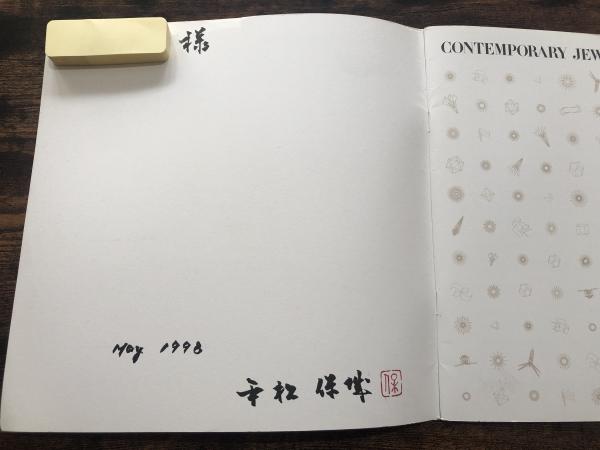 様
May 1998
平松 保城
保
CONTEMPORARY JEW